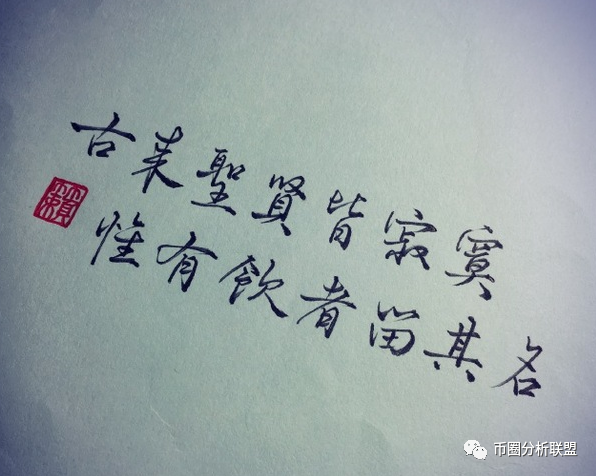 古来聖賢皆寂寞
惟有飲者留其名
賴
币圈分析联盟